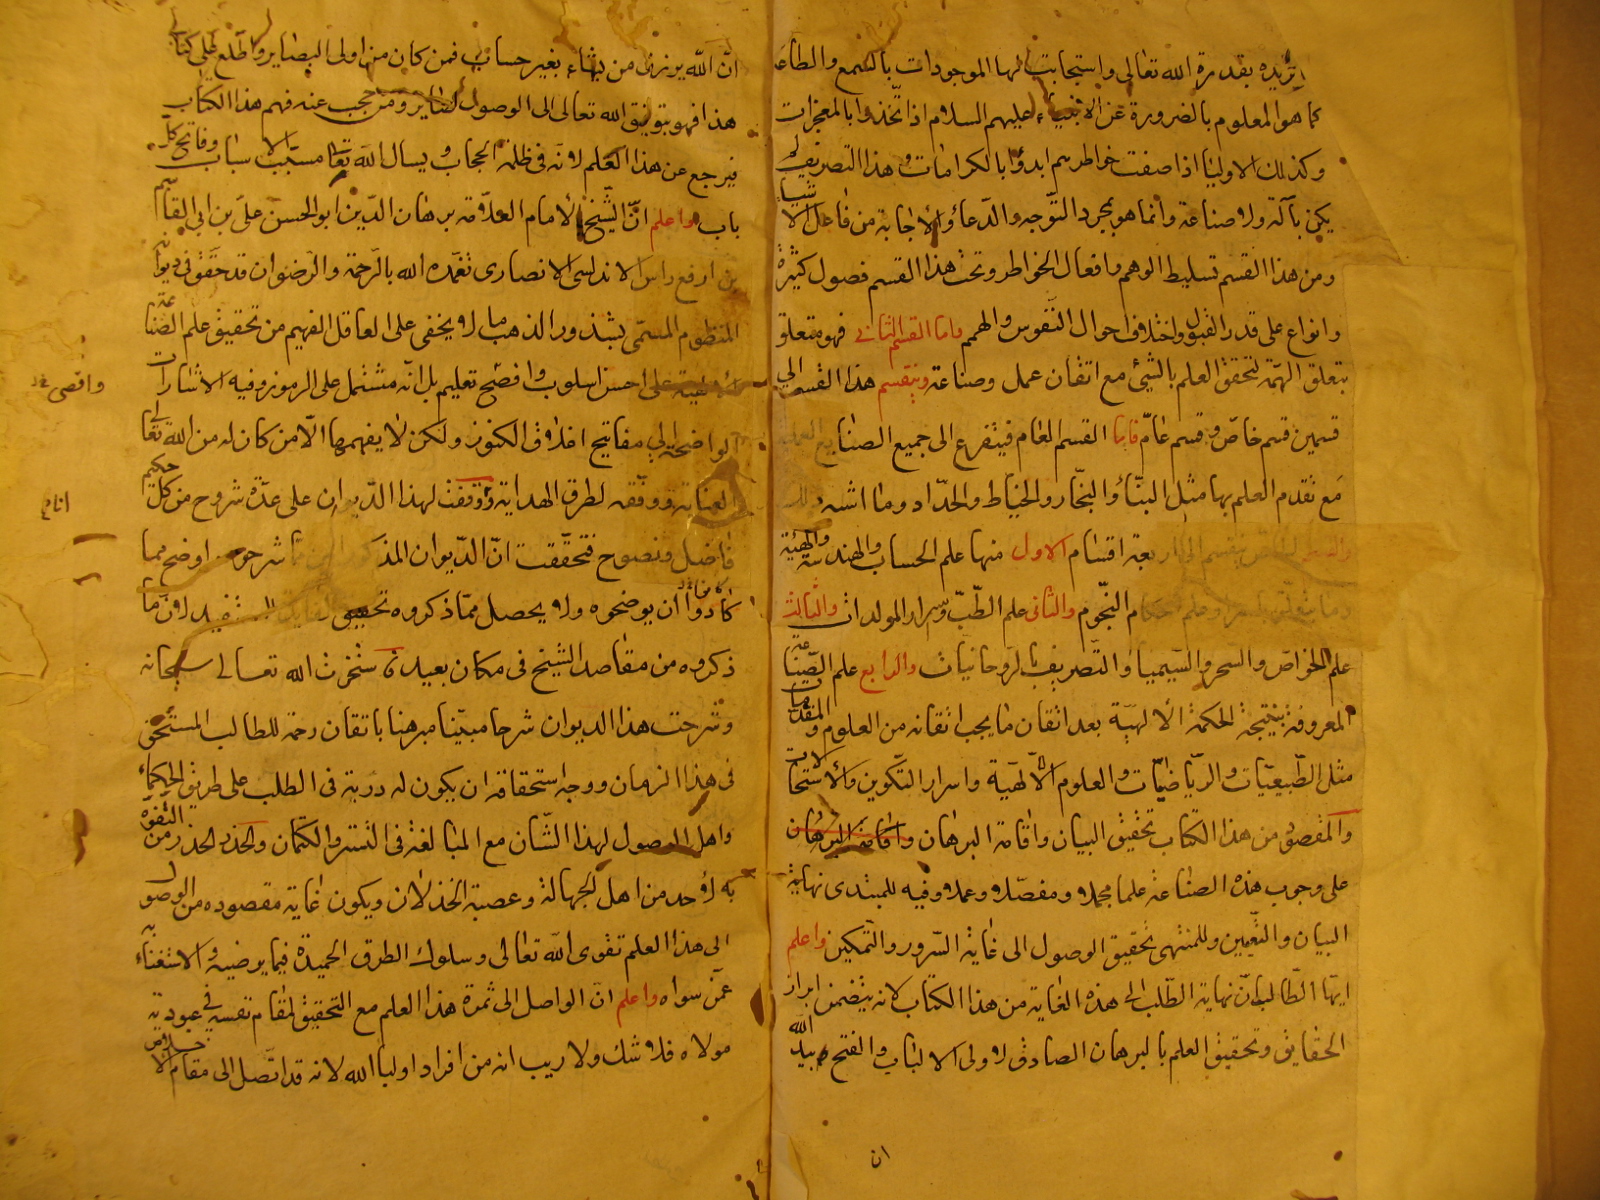 تريده بقدرة الله تعالى واستجابت لها الموجودات بالسمع والطاعة
كما هو المعلوم بالضرورة عن الانبياء عليهم السلام اذا تحدوا بالمعجزات
وكذلك الاوليا اذا صفت خواطرهم ابدؤا بالكرامات وهذا التصريف لم
يكن بآلة ولا صناعة وانما هو بمجرد التوجه والدعاء والاجابة من فاعل الاشياء
ومن هذا القسم تسليط الوهم وافعال الخواطر وتحت هذا القسم فصول كثيرة
وانواع على قدر القبول واختلاف احوال النفوس والهمم واما القسم الثاني فهو متعلق
بتعلق الهمة لتحقق العلم بالشيئ مع اتقان عمل وصناعة وينقسم هذا القسم الى
قسمين قسم خاص وقسم عام فاما القسم العام فيتفرع الى جميع الصنايع العملية
مع تقدم العلم بها مثل البناء والنجار والخياط والحداد وما اشبه ذلك
والقسم الخاص ينقسم الى اربعة اقسام الاول منها علم الحساب والهندسة والهيئة
وما يتعلق باسرار علم احكام النجوم والثانى علم الطب واسرار المولدات والثالث
علم الخواص والسحر والسيميا والتصريف بالروحانيات والرابع علم الصناعة
المعروفة بنتيجة الحكمة الالهية بعد اتقان ما يجب اتقانه من العلوم والمقدمات
مثل الطبيعيات والرياضيات والعلوم الالهية واسرار التكوين والاستحالات
والمقصود من هذا الكتاب تحقيق البيان واقامة البرهان واقامة البرهان
على وجوب هذه الصناعة علما مجملا ومفصلا وعملا وفيه للمبتدى نهاية
البيان والتعيين وللمنتهى تحقيق الوصول الى غاية السرور والتمكين واعلم
ايها الطالب ان نهاية الطلب الى هذه الغاية من هذا الكتاب لانه يتضمن ابراز
الحقايق وتحقيق العلم بالبرهان الصادق لاولى الالباب والفتح بيد الله
ان
ان الله يرزق من يشاء بغير حساب فمن كان من اولى البصاير واطلع على كتابى
هذا فهو بتوفيق الله تعالى الى الوصول لصاير ومن حجب عنه فهم هذا الكتاب
فيرجع عن هذا العلم لانه في ظلمة الحجاب ويسال الله تعا مسبب الاسباب وفاتح كل
باب واعلم ان الشيخ الامام العلامة برهان الدين ابو الحسن على بن ابى القاسم
بن ارفع راس الاندلسى الانصارى تغمده الله بالرحمة والرضوان قد حقق في ديوانه
المنظوم المسمى بشذور الذهب ما لا يخفى على العاقل الفهيم من تحقيق علم الصناعة
الالهية على احسن اسلوب وافصح تعليم بل انه مشتمل على الرموز وفيه الاشارات
واقصى
الواضحة الى مفاتيح اغلاق الكنوز ولكن لا يفهمها الا من كان له من الله تعا
العناية ووفقه لطرق الهداية ووقفت لهذا الديوان على عدة شروح من كل حكيم
فاضل ونصوح فتحققت ان الديوان المذكور شرحوه اوضح مما
كادوا ان يوضحوه ولا يحصل مما ذكروه تحقيق لان ما
ذكروه من مقاصد الشيخ في مكان بعيد فاستخرت الله تعالى سبحانه
وشرحت هذا الديوان شرحا مبينا مبرهنا باتقان رحمة للطالب المستحق
في هذا الزمان ووجه استحقاقه ان يكون له دربة في الطلب على طريق الحكماء
واهل الوصول لهذا الشان مع المبالغة فى التستر والكتمان والحذر الحذر من التفوه
به لاحد من اهل الجهالة وعصبة الخذلان ويكون غاية مقصوده من الوصول
الى هذا العلم تقوى الله تعالى وسلوك الطرق الحميدة فيما يرضيه والاستغناء به
عمن سواه واعلم ان الواصل الى ثمرة هذا العلم مع التحقيق لمقام نفسه في عبودية
مولاه فلا شك ولا ريب انه من افراد اوليا الله لانه قد اتصل الى مقام الاخلاص